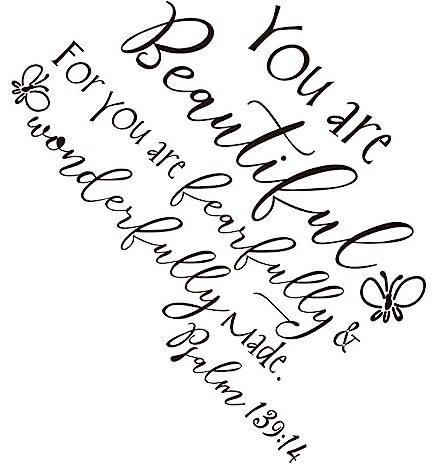 You are
Beautiful
For you are fearfully &
wonderfully Made.
Psalm 139:14